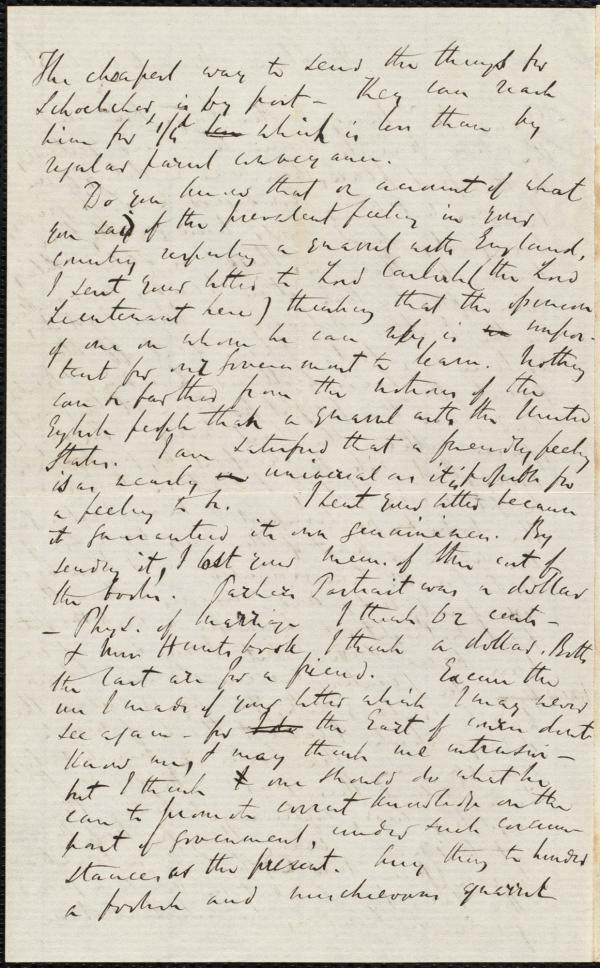 The cheapest way to send the things for
Schoelcher, is by post - They can reach
him for 1/4d which is less than by
regular parcel conveyance.
Do you know that on account of what
you said of the prevalent feeling in your
country respecting a quarrel with England,
I sent your letter to Lord Carlisle (the Lord
Lieutenant here) thinking that the opinion
of one on whom he can rely, is impor-
tant for our Government to learn. Nothing
can be farther from the notions of the
English people than a quarrel with the United
States. I am satisfied that a friendly feeling
is as nearly universal as it is possible for
a feeling to be. I sent your letter because
it guaranteed its own genuineness. By
sending it, I lost your mem. of the cost of
the books. Parker's Portrait was a dollar
- Phys. of Marriage I think 62 cents -
& Mrs Hunt's book, I think a dollar. Both
the last are for a friend. Excuse the
use I made of your letter which I may never
see again - for the Earl of course don't
know me, & may think me intrusive -
but I think one should do what he
can to promote correct knowledge on the
part of government, under such circum-
stances as the present. Any thing to hinder
a foolish and mischievous quarrel